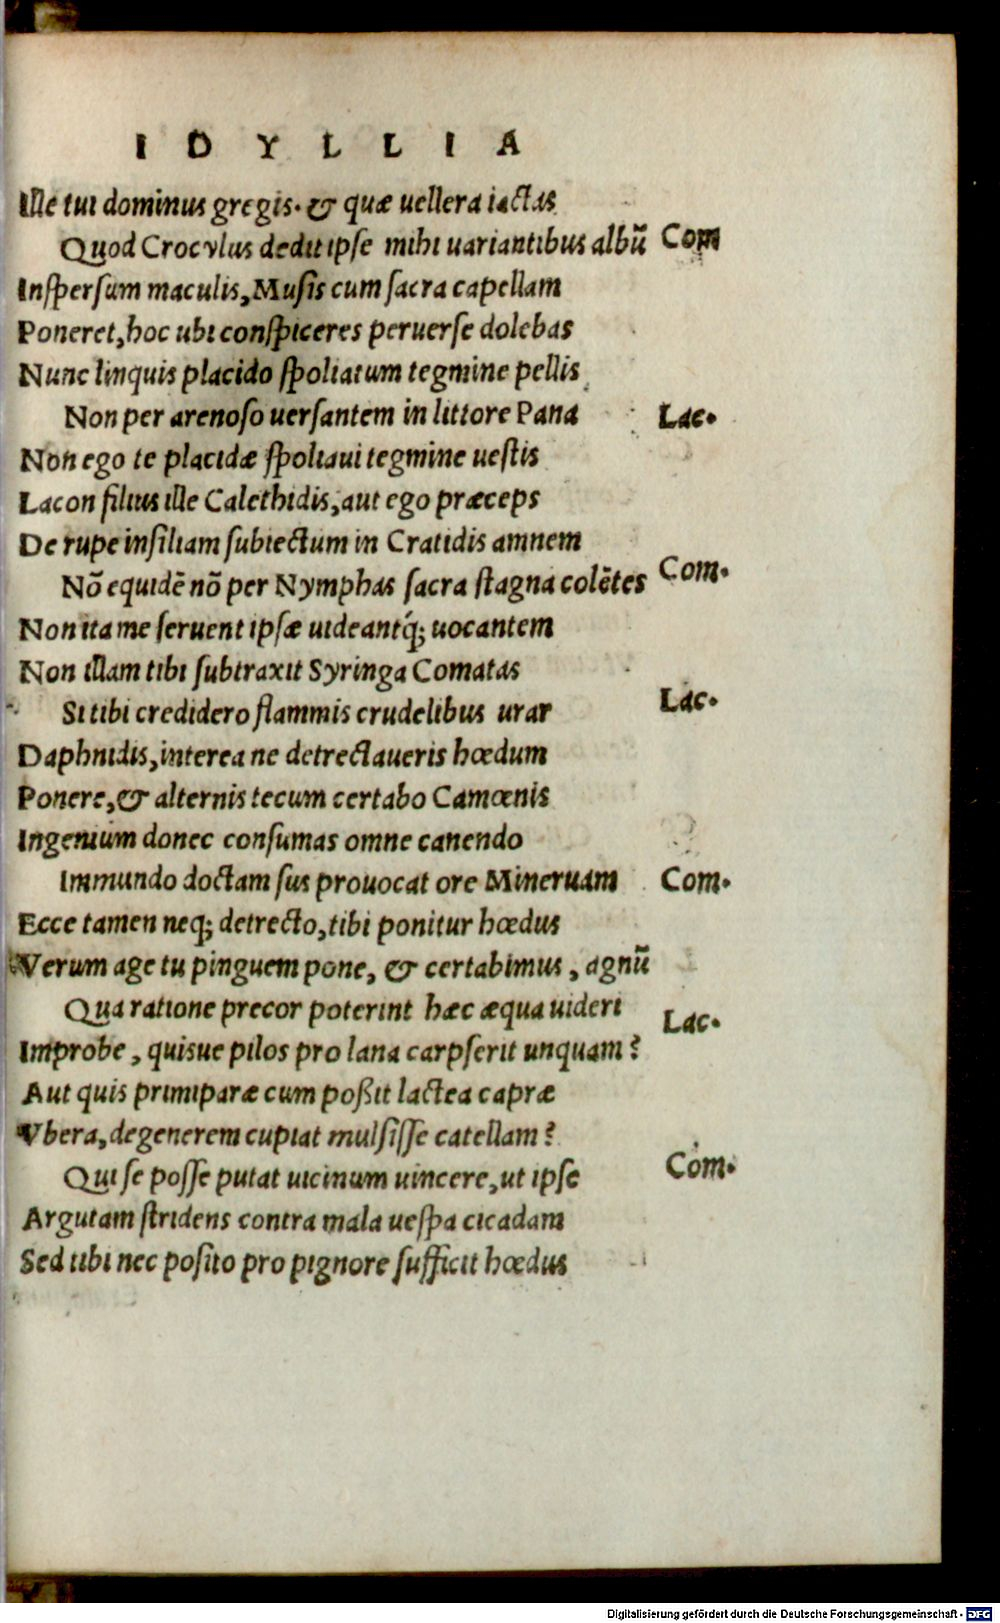 IDYLLIA
Ille tui dominus gregis. & quæ uellera iactas
Quod Crocylus dedit ipse mihi uariantibus albũ Com
Inspersum maculis, Musis cum sacra capellam
Poneret, hoc ubi conspiceres peruerse dolebas
Nunc linquis placido spoliatum tegmine pellis
Non per arenoso uersantem in littore Pana Lac.
Non ego te placidæ spoliaui tegmine uestis
Lacon filius ille Calethidis, aut ego præceps
De rupe insiliam subiectum in Cratidis amnem
Nõ equidẽ nõ per Nymphas sacra stagna colẽtes Com.
Non ita me seruent ipsæ uideantq́; uocantem
Non illam tibi subtraxit Syringa Comatas
Si tibi credidero flammis crudelibus urar Lac.
Daphnidis, interea ne detrectaueris hœdum
Ponere, & alternis tecum certabo Camœnis
Ingenium donec consumas omne canendo
Immundo doctam sus prouocat ore Mineruam Com.
Ecce tamen neq; detrecto, tibi ponitur hœdus
Verum age tu pinguem pone, & certabimus, agnũ
Qua ratione precor poterint hæc æqua uideri Lac.
Improbe, quisue pilos pro lana carpserit unquam?
Aut quis primiparæ cum poßit lactea capræ
Vbera, degenerem cupiat mulsisse catellam?
Qui se posse putat uicinum uincere, ut ipse Com.
Argutam stridens contra mala uespa cicadam
Sed tibi nec posito pro pignore sufficit hœdus
Digitalisierung gefördert durch die Deutsche Forschungsgemeinschaft - DFG